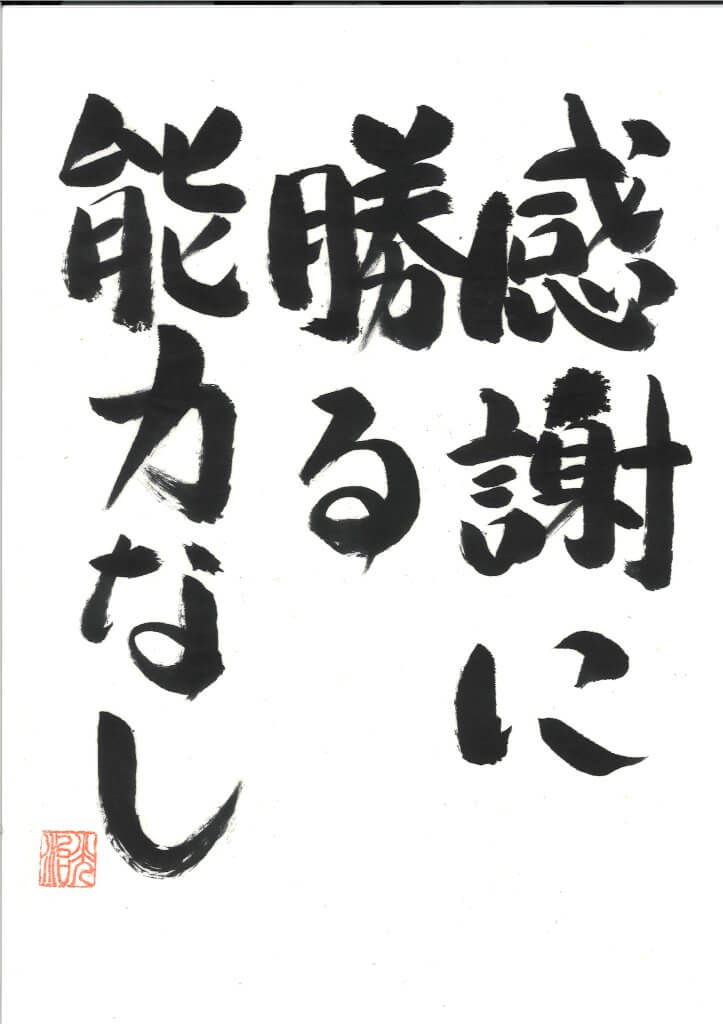 感謝に
勝る
能力なし